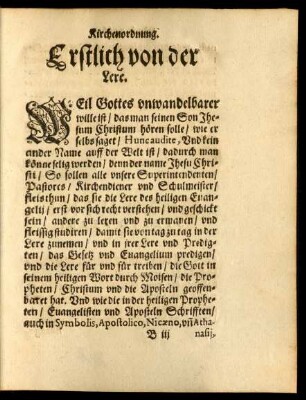 Kirchenordnung.
Erstlich von der
Lere.
WEil Gottes vnwandelbarer
wille ist / das man seinen Son Jhe-
sum Christum hören solle / wie er
selbs saget / Hunc audite, Vnd kein
ander Name auff der Welt ist / dadurch man
könne selig werden / denn der name Jhesu Chri-
sti / So sollen alle vnsere Superintendenten /
Pastores / Kirchendiener vnd Schulmeister /
fleis thun / das sie die Lere des heiligen Euan-
gelij / erst vor sich recht verstehen / vnd geschickt
sein / andere zu leren vnd zu ermanen / vnd
fleissig studiren / damit sie von tag zu tag in der
Lere zunemen / vnd in irer Lere vnd Predig-
ten / das Gesetz vnd Euangelium predigen /
vnd die Lere für vnd für treiben / die Gott in
seinem heiligen Wort durch Moisen / die Pro-
pheten / Christum vnd die Aposteln geoffen-
baret hat. Vnd wie die in der heiligen Prophe-
ten / Euangelisten vnd Aposteln Schrifften /
auch in Symbolis, Apostolico, Nicæno, vñ Atha-
B iij
nasij,